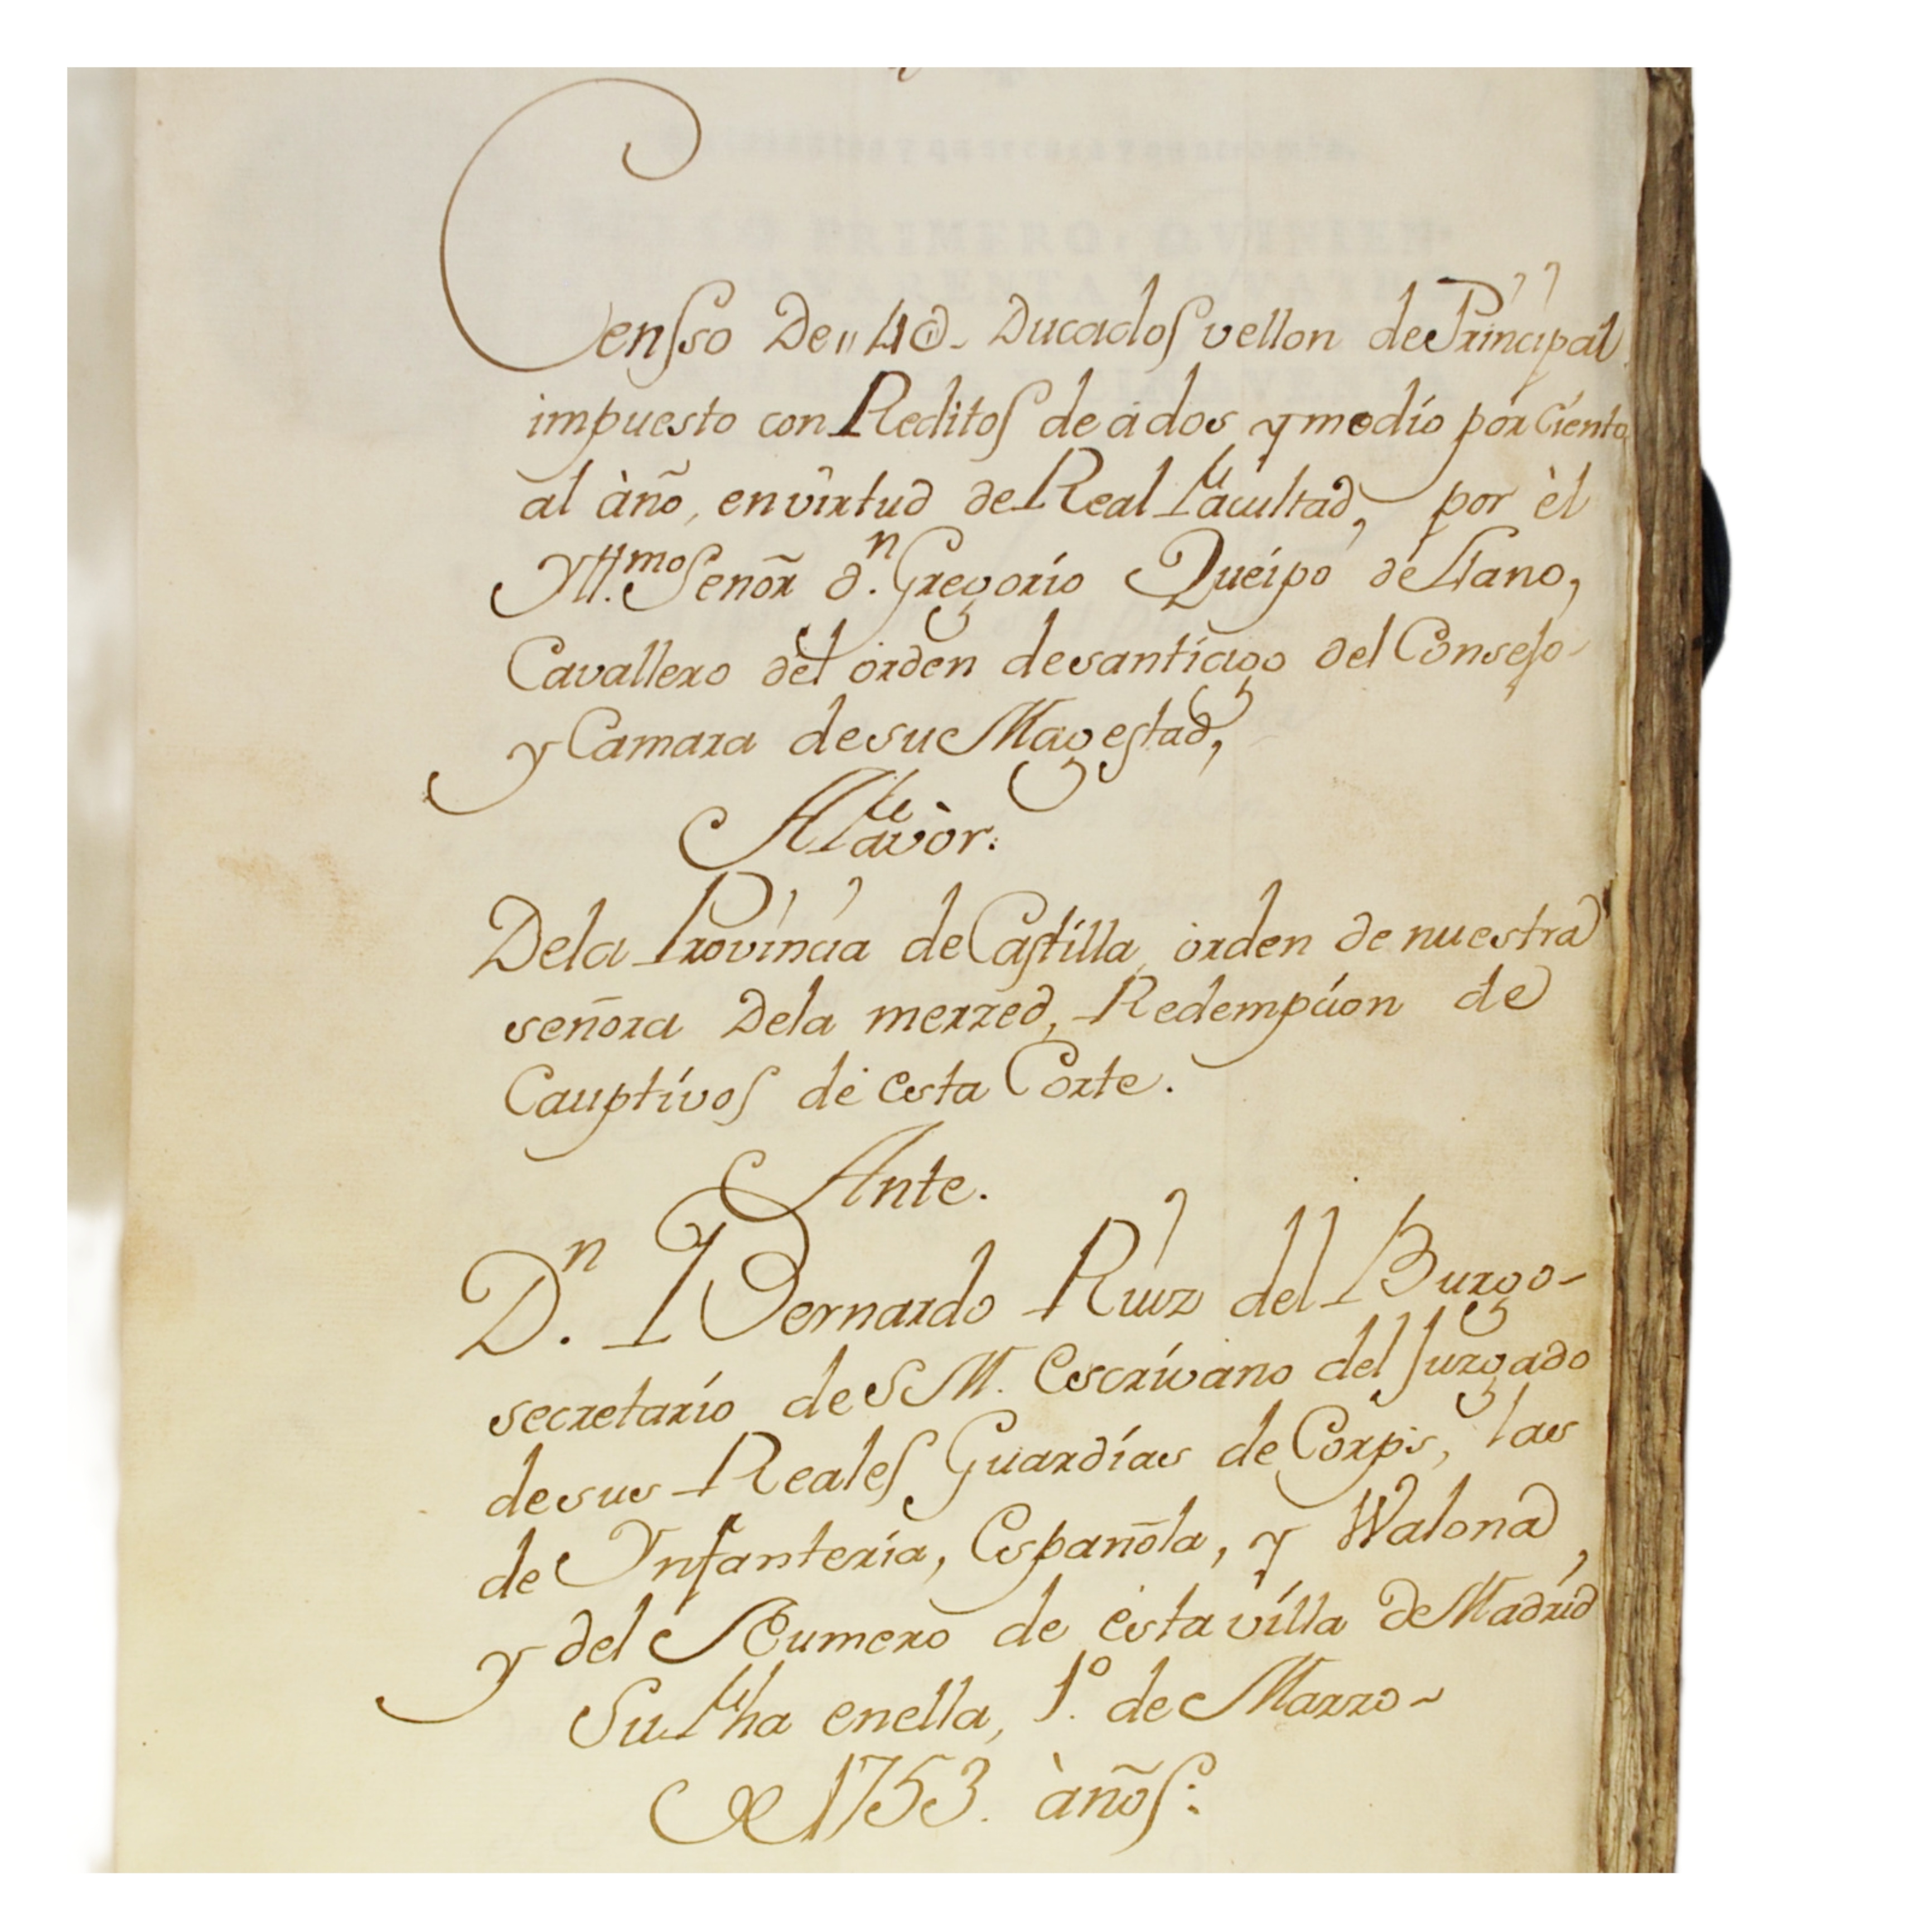 Censso De 4@. Ducados vellon de Principal
impuesto con Reditos de à dos y medio por Ciento
al àño, en virtud de Real facultad, por èl
Yll.mo Señor d.n Gregorio Queipo de Llano,
Cavallero del orden de santiago del Consejo
y Camara de su Magestad,
A favòr:
De la Provincia de Castilla, orden de nuestra
señora De la merzed, Redempcion de
Cauptivos de esta Corte.
Ante.
D.n Bernardo Ruiz del Burgo-
secretario de S M. Escrivano del Juzgado
de sus Reales Guardias de Corps, las
de Ynfanteria, Española, y Walona,
y del Numero de esta villa de Madrid
Su fha en ella, 1.o de Marzo-
de 1753. àños: